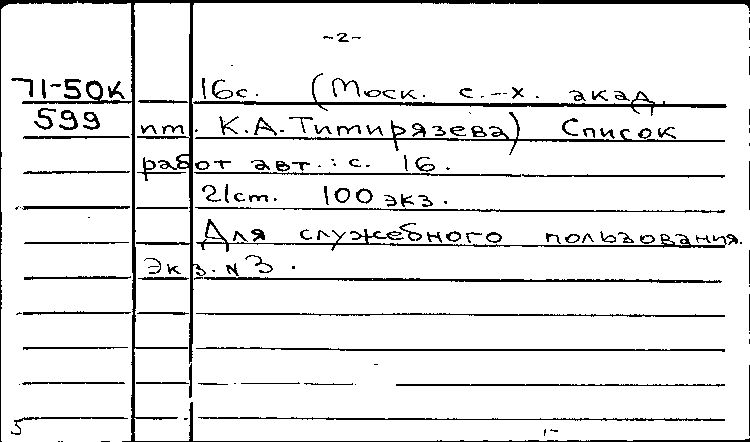 -2-
71-50к 16с. (Моск. с.-х. акад.
599 им. К.А. Тимирязева) Список
работ авт.: с. 16.
21см. 100 экз.
Для служебного пользования.
Экз. N 3.
5